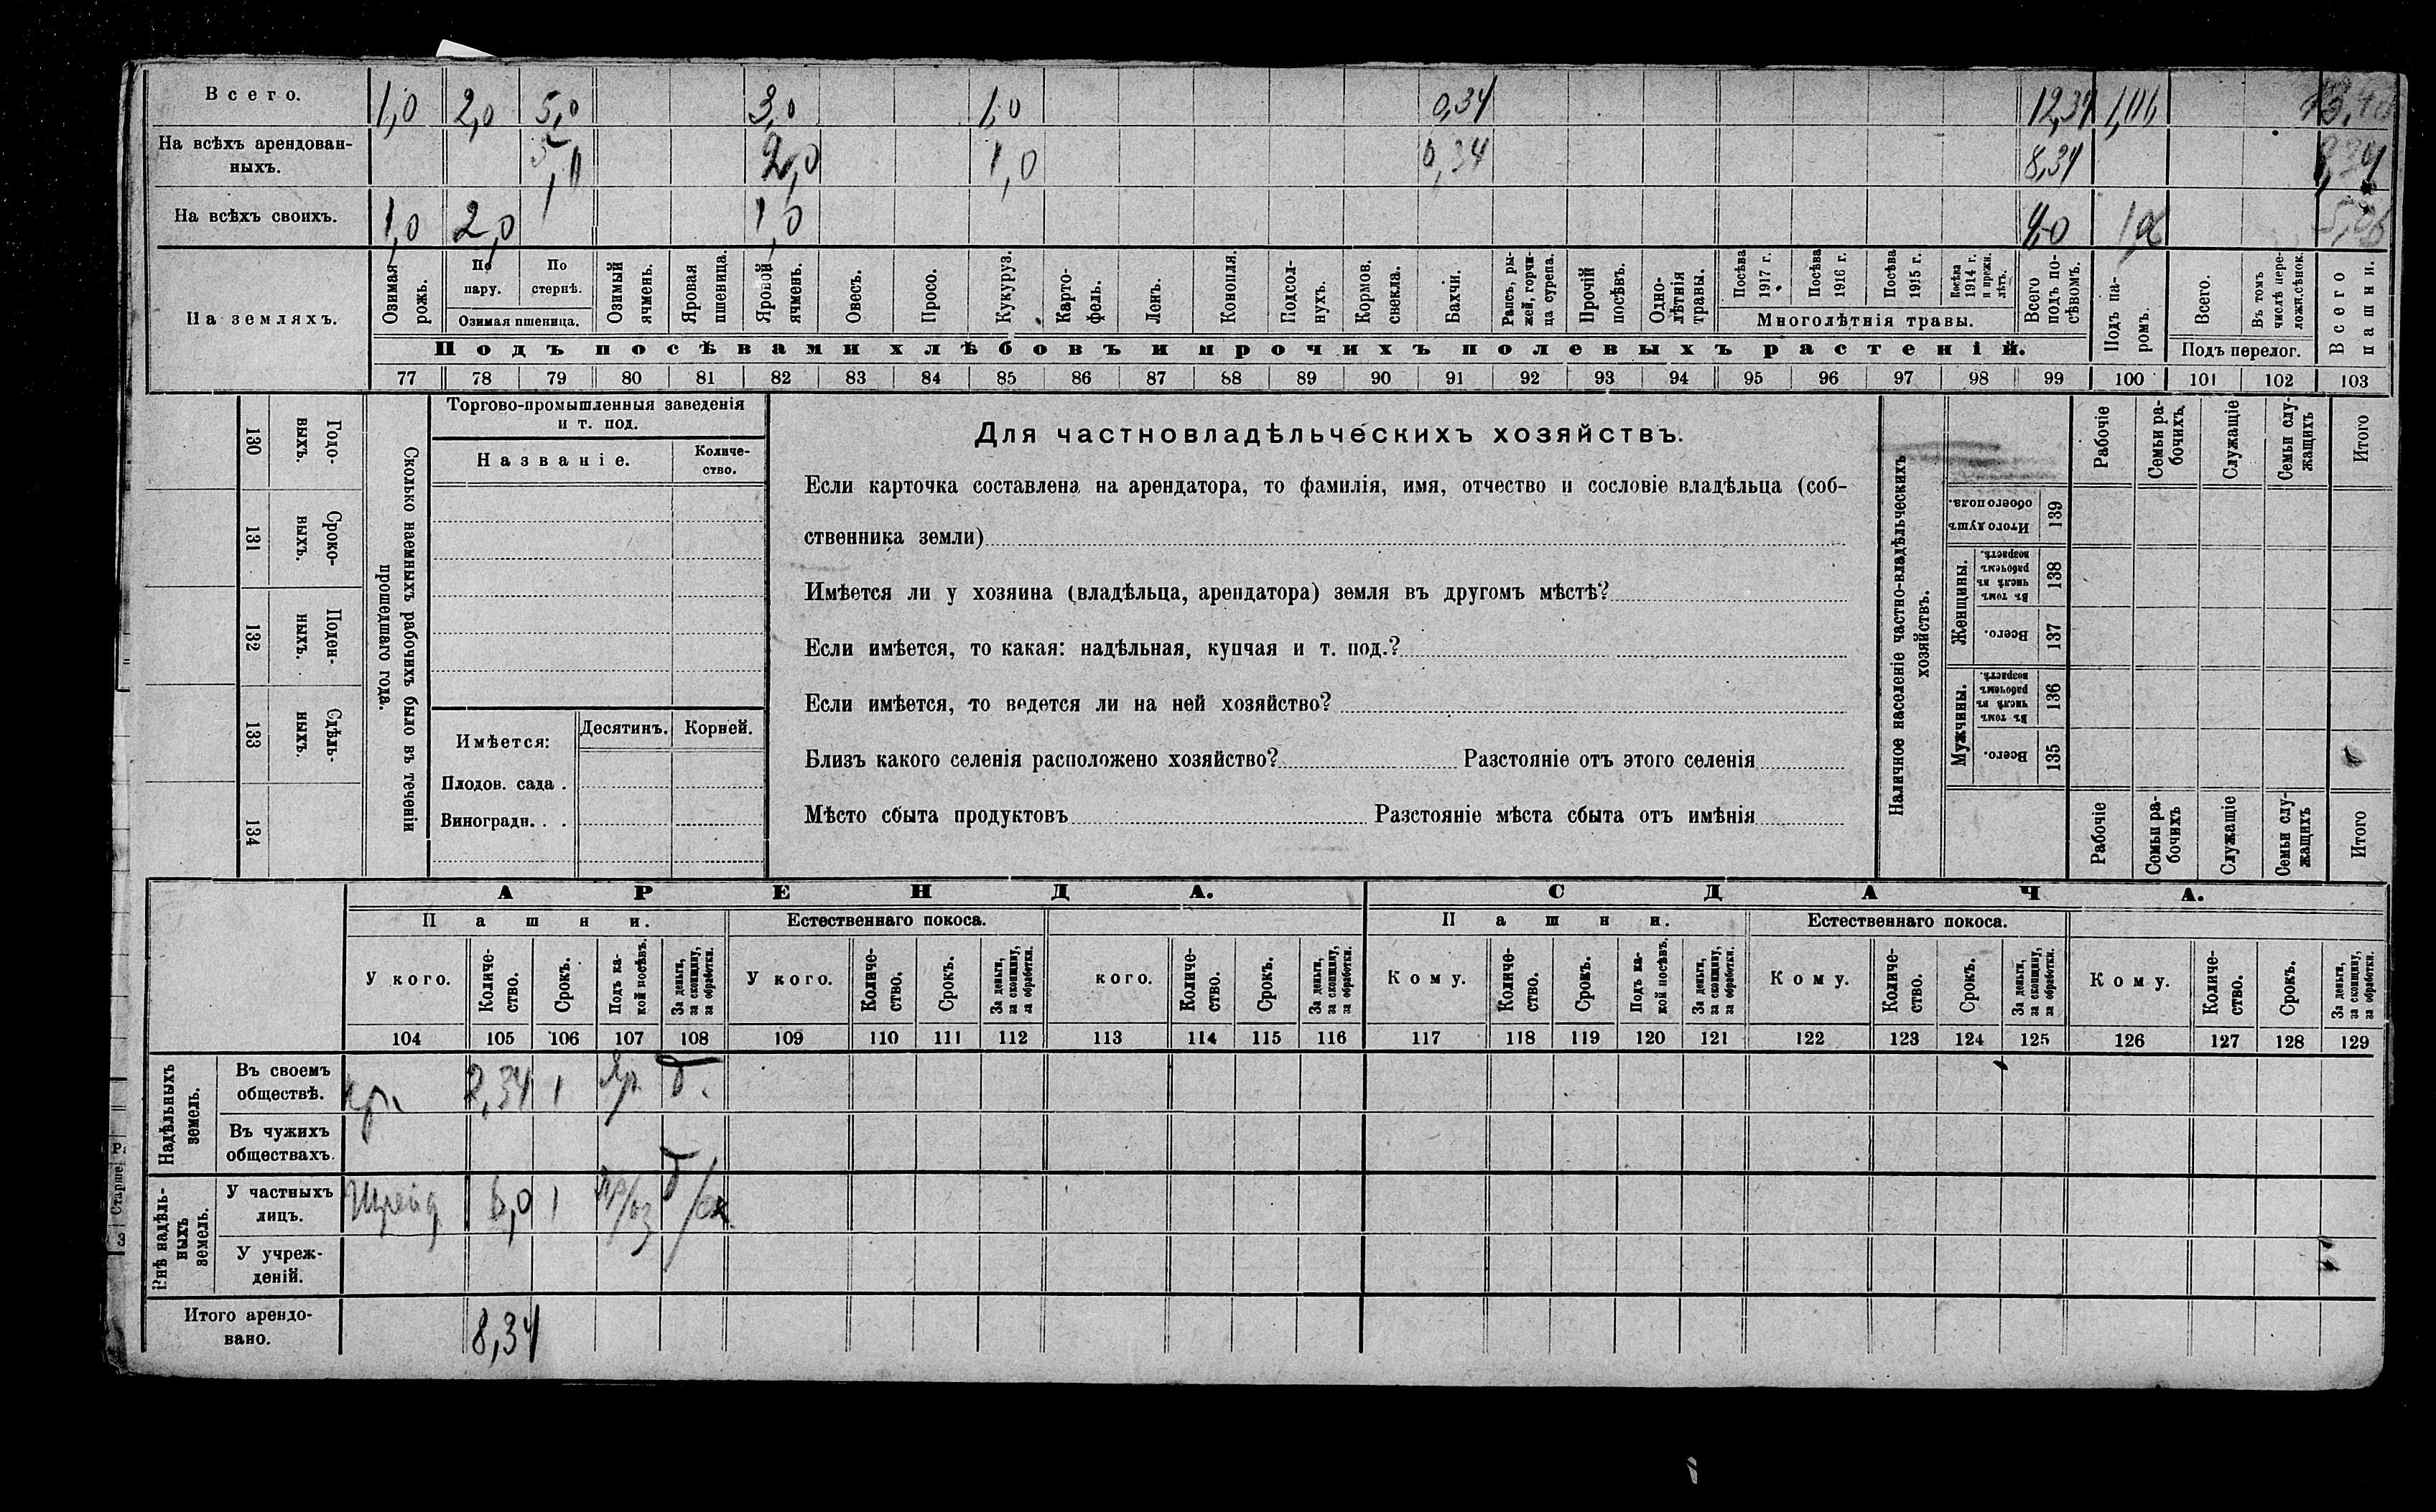 Всего. 1,0 2,0 5,0 3,0 1,0 0,34 12,34 1,06
На всѣхъ арендован-
ныхъ. 2,0 1,0 0,34 8,34 8,34
На всѣхъ своихъ. 1,0 2,0 1,0 4,0 1,06 5,06
На земляхъ.
Озимая рожь.
По пару.
По стернѣ.
Озимая пшеница.
Озимый ячмень.
Яровая пшеница.
Яровой ячмень.
Овесъ.
Просо.
Кукуруз.
Карто-
фель.
Ленъ.
Конопля.
Подсол-
нухъ.
Кормов.
свекла.
Бахчи.
Рапсъ, ры-
жей, горчи-
ца сурепа.
Прочій
посѣвъ.
Одно-
лѣтнія
травы.
Посѣва
1917 г.
Посѣва
1916 г.
Посѣва
1915 г.
Посѣва
1914 г.
и прежн.
лѣтъ.
Многолѣтнія травы.
Всего
подъ по-
сѣвомъ.
Подъ па-
ромъ.
Всего.
Въ томъ
числѣ пере-
ложн.сѣнок.
Подъ перелог.
Всего
пашни.
Подъ посѣвами хлѣбовъ и прочихъ полевыхъ растеній.
77 78 79 80 81 82 83 84 85 86 87 88 89 90 91 92 93 94 95 96 97 98 99 100 101 102 103
130 Годо-
выхъ.
131 Сроко-
выхъ.
132 Поден-
ныхъ.
133 Сдѣль-
ныхъ.
134
Сколько наемныхъ рабочихъ было въ теченіи
прошедшаго года.
Торгово-промышленныя заведенія
и т. под.
Названіе.
Количе-
ство.
Имѣется:
Десятинъ. Корней.
Плодов. сада .
Виноградн. . .
Для частновладѣльческихъ хозяйствъ.
Если карточка составлена на арендатора, то фамилія, имя, отчество и сословіе владѣльца (соб-
ственника земли)
Имѣется ли у хозяина (владѣльца, арендатора) земля въ другомъ мѣстѣ?
Если имѣется, то какая: надѣльная, купчая и т. под.?
Если имѣется, то ведется ли на ней хозяйство?
Близъ какого селенія расположено хозяйство? Разстояніе отъ этого селенія
Мѣсто сбыта продуктовъ Разстояніе мѣста сбыта отъ имѣнія
Наличное населеніе частно-владѣльческихъ
хозяйствъ.
Рабочіе
Семьи ра-
бочихъ.
Служащіе
Семьи слу-
жащихъ
Итого
Итого душъ
обоего пола.
139
Женщины.
Въ томъ
числѣ въ
рабочемъ
возрастѣ.
138
Всего.
137
Мужчины.
Въ томъ
числѣ въ
рабочемъ
возрастѣ.
136
Всего.
135
Рабочіе
Семьи ра-
бочихъ
Служащіе
Семьи слу-
жащихъ
Итого
АРЕНДА. СДАЧА.
Пашни. Естественнаго покоса. Пашни. Естественнаго покоса.
У кого.
Количе-
ство.
Срокъ.
Подъ ка-
кой посѣвъ.
За деньги,
за скопщину,
за обработки.
У кого.
Количе-
ство.
Срокъ.
За деньги,
за скопщину,
за обработки.
кого.
Количе-
ство.
Срокъ.
За деньги,
за скопщину,
за обработки.
Кому.
Количе-
ство.
Срокъ.
Подъ ка-
кой посѣвъ.
За деньги,
за скопщину,
за обработки.
Кому.
Количе-
ство.
Срокъ.
За деньги,
за скопщину,
за обработки.
Кому.
Количе-
ство.
Срокъ.
За деньги,
за скопщину,
за обработки.
104 105 106 107 108 109 110 111 112 113 114 115 116 117 118 119 120 121 122 123 124 125 126 127 128 129
Надѣльныхъ
земель.
Въ своемъ
обществѣ. кр. 2,34 1 Яр. д.
Въ чужихъ
обществахъ.
Внѣ надѣль-
ныхъ
земель.
У частныхъ
лицъ. 6,0 1 яр/оз д/ск
У учреж-
деній.
Итого арендо-
вано. 8,34
Р.
Старше